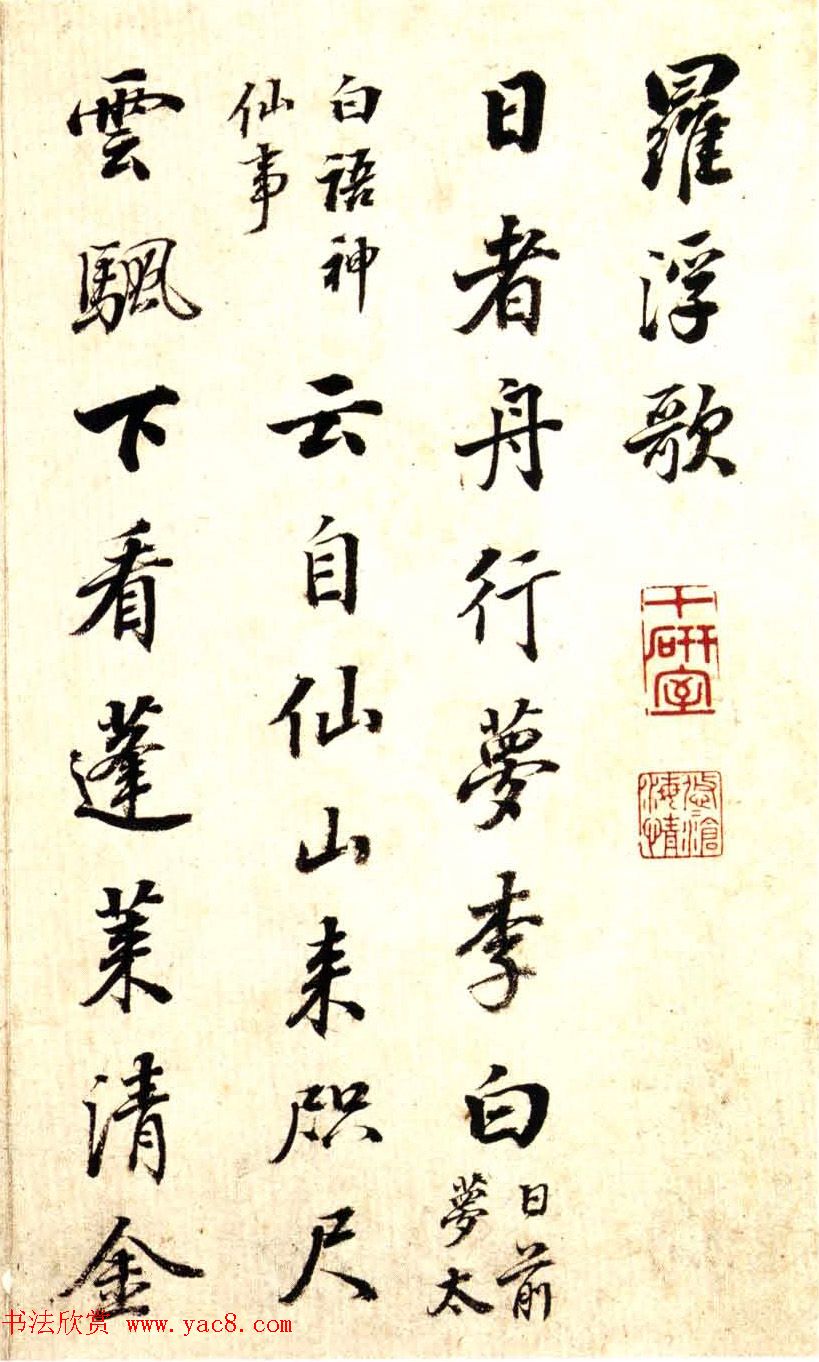 羅浮歌
千研室
日者舟行夢李白日前夢太
白語神仙事云自仙山来咫尺
雲颿下看蓬莱清金
书法欣赏 www.yac8.com